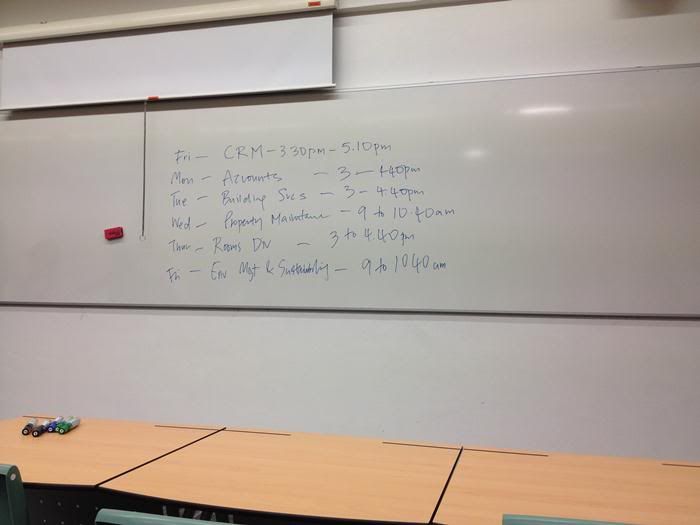 Fri — CRM — 3.30pm — 5.10pm
Mon — Accounts — 3 — 4.40pm
Tue — Building Svcs — 3 — 4.40pm
Wed — Property Maintenance — 9 to 10.40am
Thur — Rooms Div — 3 to 4.40pm
Fri — Env Mgt & Sustainability — 9 to 10.40am